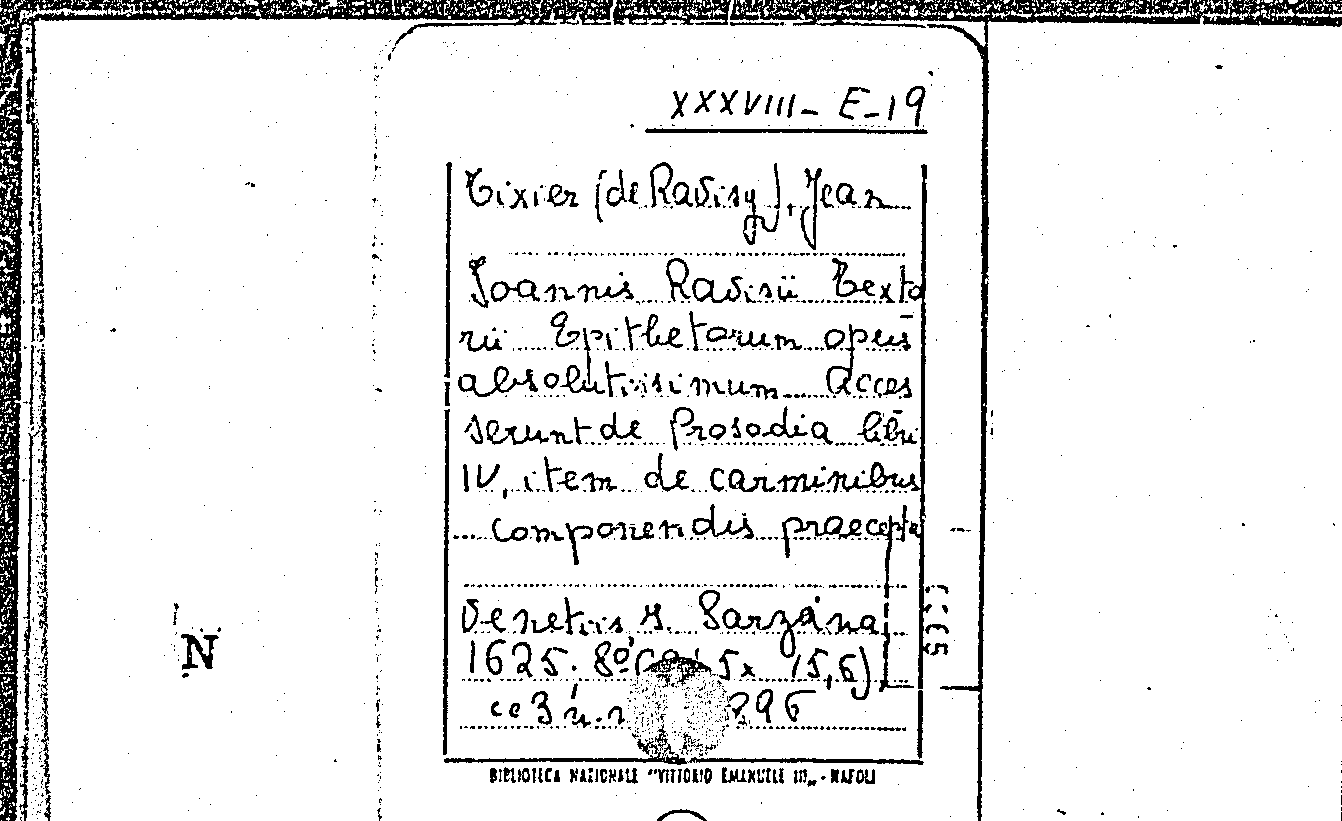 XXXVIII - E-19
Tixier (de Ravisy), Jean
Joannis Ravisii Texto
rii Epithetorum opus
absolutissimum Acces
serunt de Prosodia libri
IV, item de carminibus
componendis praecepta
Venetiis, Sarzina,
1625. 8º 5 x 15,6)
cc 3 n. 296
N
BIBLIOTECA NAZIONALE "VITTORIO EMANUELE III„ - NAPOLI